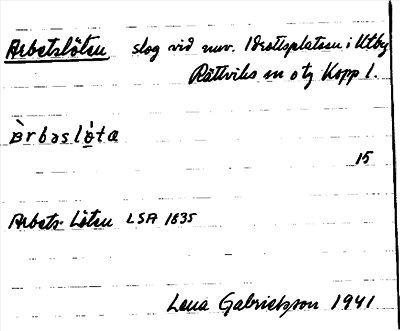 Arbetslöten slog vid nuv. Idrottsplatsen i Utby
Rättviks sn o tg Kopp l.
àrbəslò̱ta
15
Arbets-Löten LSA 1835
Lena Gabrielsson 1941